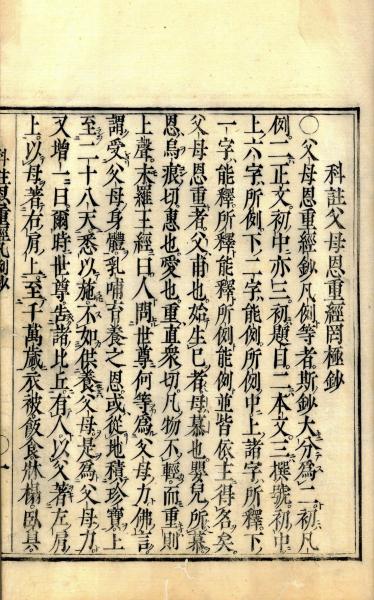 科註父母恩重經罔極鈔
〇父母恩重經鈔凡例等者斯鈔大分爲二初凡
例二正文初中亦三初題目二本文三撰號初中
上六字所例下二字能例所例中上諸字所釋下
一字能釋所釋能釋所例能例並皆依主得名矣
父母恩重者父甫也始生己者母慕也嬰兒所慕
恩烏痕切惠也愛也重直衆切凡物不輕而重則
上聲末羅王經曰人問世尊何等爲父母力佛言
謂受父母身體乳哺育養之恩或從地積珍寶上
至二十八天悉以施人不如供養父母是爲父母力
又增一曰爾時世尊告諸比丘有人以父著左肩
上以母著右肩上至千萬歲衣被飯食牀榻臥具
科註恩重經凡例鈔
〇一